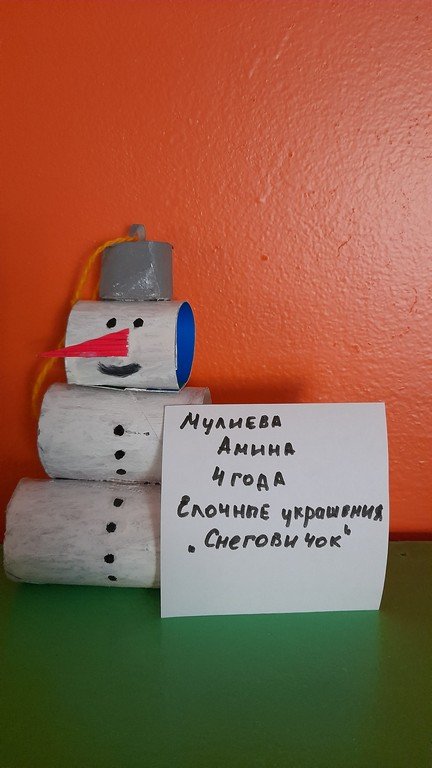 Мулиева
Амина
4 года
Елочные украшения
„Снеговичок"